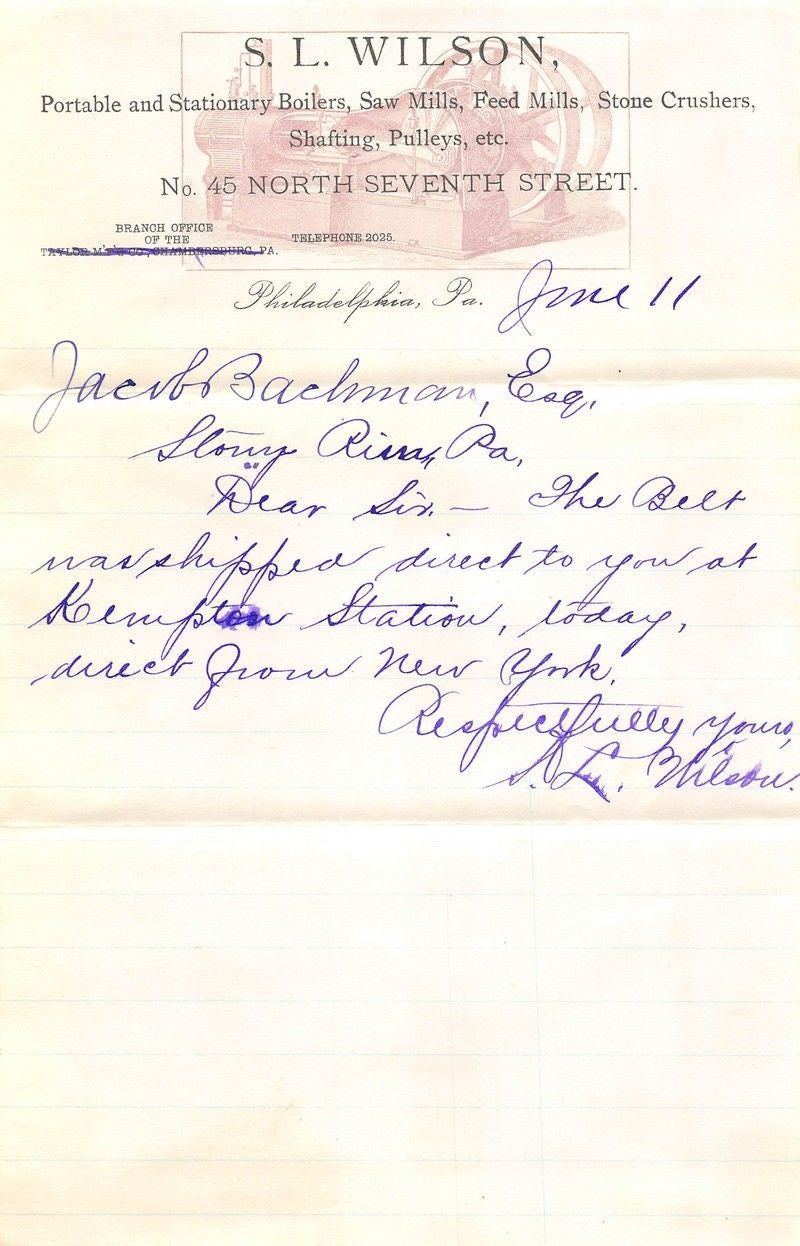 S. L. WILSON,
Portable and Stationary Boilers, Saw Mills, Feed Mills, Stone Crushers,
Shafting, Pulleys, etc.
No. 45 NORTH SEVENTH STREET.
BRANCH OFFICE
OF THE
TAYLOR M'F'G CO., CHAMBERSBURG, PA.
TELEPHONE 2025.
Philadelphia, Pa. June 11
Jacob Bachman, Esq.
Stony Pa.
Dear Sir. — The Belt
was shipped direct to you at
Kempton Station, today,
direct from New York.
Respectfully yours,
S. L. Wilson.